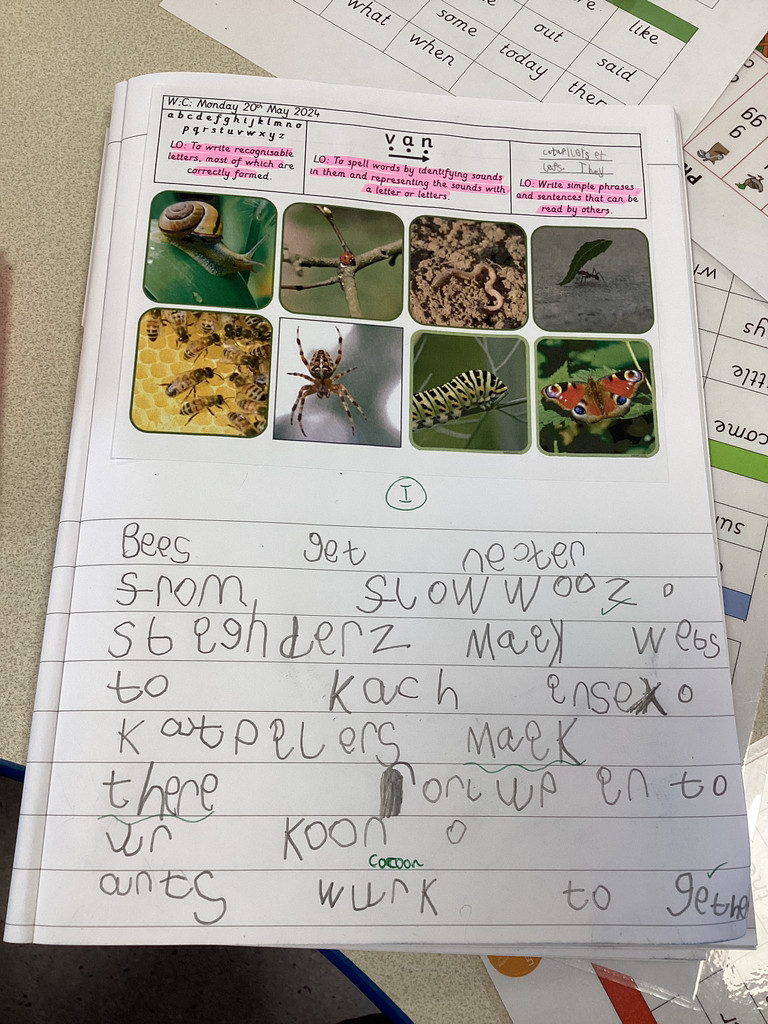 like
what
some
out
said
when
today
W.C: Monday 20th May 2024
a b c d e f g h i j k l m n o
p q r s t u v w x y z
LO: To write recognisable
letters, most of which are
correctly formed.
van
LO: To spell words by identifying sounds
in them and representing the sounds with
a letter or letters.
LO: Write simple phrases
and sentences that can be
read by others.
I
Bees get necter
from flowwooz.
Maek webs
to kach ensex.
katpelers Maek
there en to
un koon.
cocoon
ants wurk to gethe
gg
g